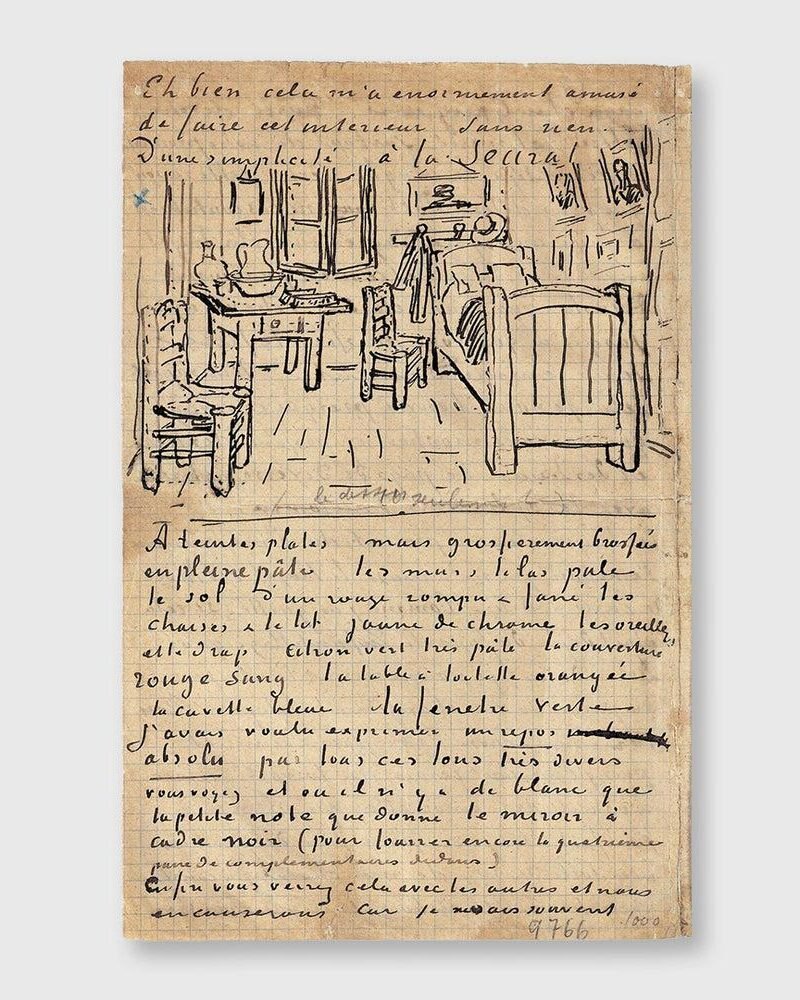 Eh bien cela m'a enormement amusé
de faire cet interieur sans rien
D'une simplicité à la Seurat
A teintes plates mais grossierement brossées
en pleine pâte les murs lilas pale
le sol d'un rouge rompu & fané les
chaises & le lit jaune de chrome les oreillers
et le drap citron vert très pâle la couverture
rouge sang la table à toilette orangée
la cuvette bleue la fenetre verte
J'avais voulu exprimer un repos
absolu par tous ces tons très divers
vous voyez et ou il n'y a de blanc que
la petite note que donne le miroir à
cadre noir (pour fourrer encore la quatrième
paire de complementaires dedans)
Enfin vous verrez cela avec les autres et nous
en causerons car je ne sais souvent
9766 1000